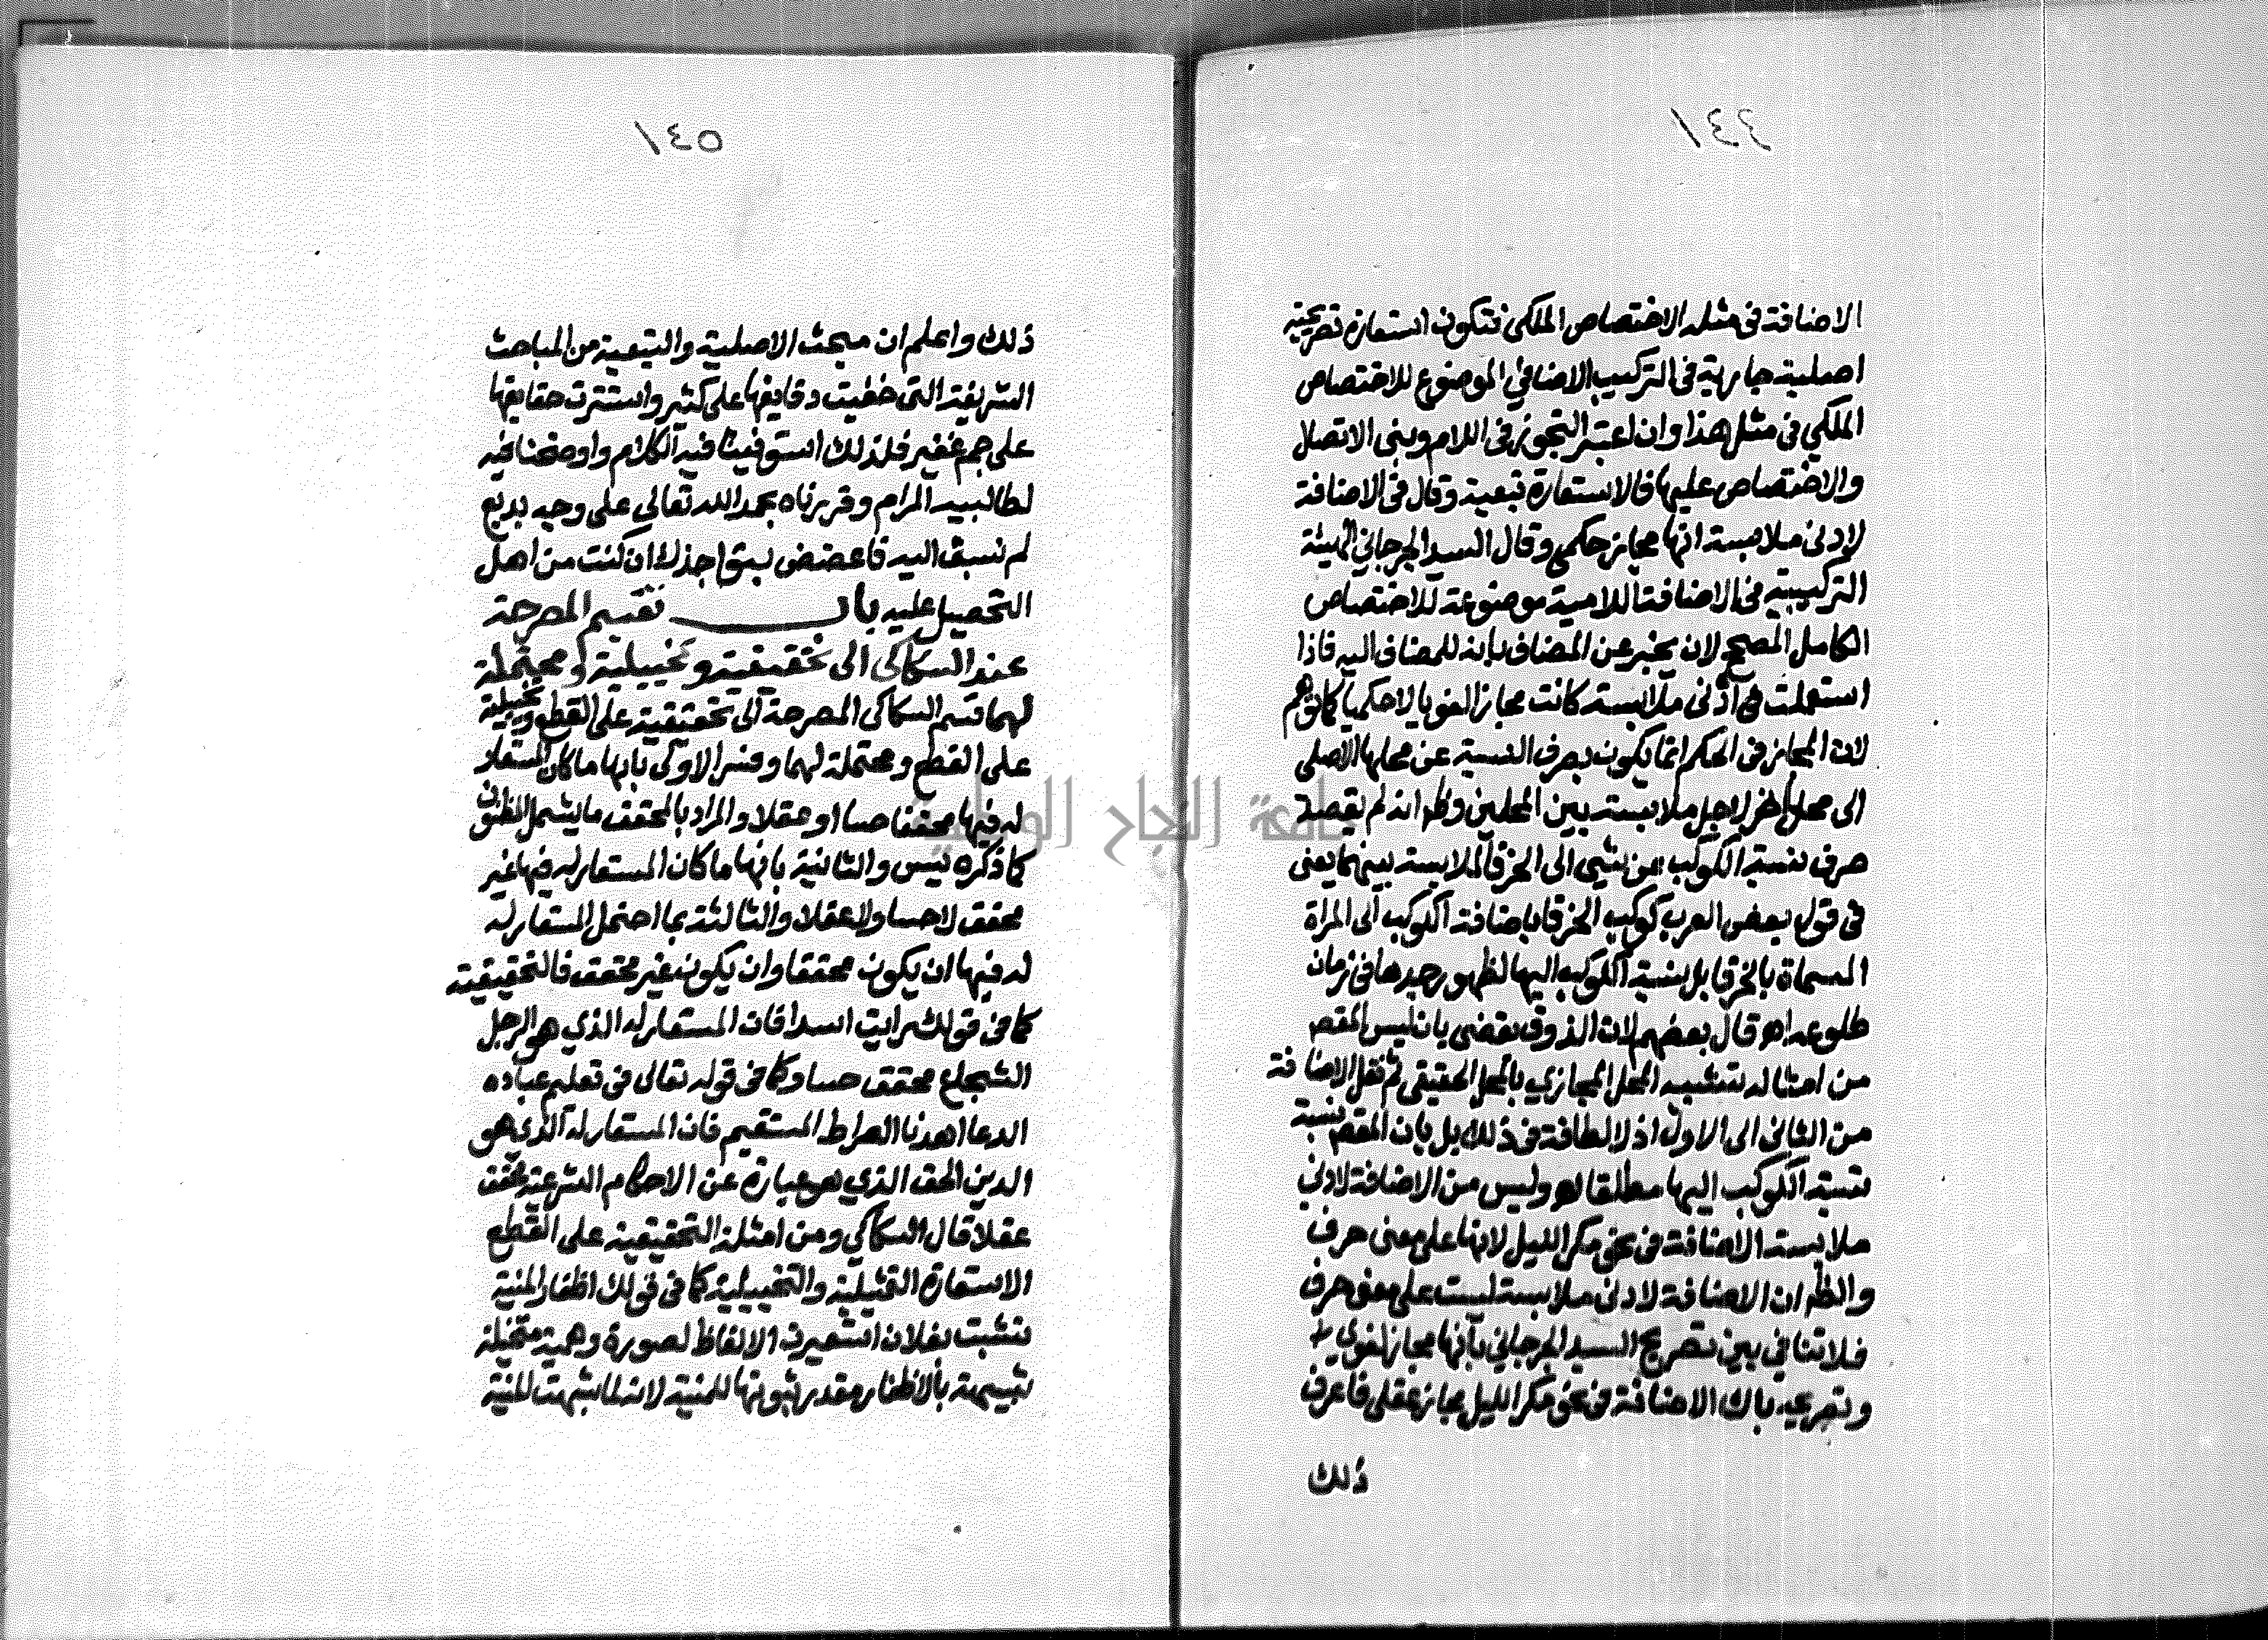 ١٤٤
الاضافة فى مثله الاختصاص الملكى فتكون استعارة تصريحية
اصلية جارية فى التركيب الاضافي الموضوع للاختصاص
الملكي فى مثل هذا وان اعتبر التجوز فى اللام وبنى الاتصال
والاختصاص عليها فالاستعارة تبعية وقال فى الاضافة
لادنى ملابسة انها مجاز حكمى وقال السيد الجرجاني الهيئة
التركيبية فى الاضافة اللامية موضوعة للاختصاص
الكامل المصحح لان يخبر عن المضاف بانه للمضاف اليه فاذا
استعملت فى ادنى ملابسة كانت مجازا لغويا لا حكميا كما توهم
لان المجاز فى الحكم انما يكون بصرف النسبة عن محلها الاصلى
الى محل اخر لاجل ملابسة بين المحلين وظ انه لم يقصد
صرف نسبة الكوكب عن شئ الى الخرقا لملابسة بينهما يعنى
فى قول بعض العرب كوكب الخرقا باضافة الكوكب الى المراة
المسماة بالخرقا بل نسبة الكوكب اليها لظهور جدها فى زمان
طلوعه اهـ قال بعضهم لان الذوق يقضى بان ليس المقص
من امثاله تشبيه المحل المجازي بالمحل الحقيقى ثم نقل الاضافة
من الثانى الى الاول اذ لا لطافة فى ذلك بل بان المقص نسبة
نسبة الكوكب اليها مطلقا اهـ وليس من الاضافة لادنى
ملابسة الاضافة فى نحو مكر الليل لانها على معنى حرف
والظ ان الاضافة لادنى ملابسة ليست على معنى حرف
فلا تنافي بين تصريح السيد الجرجاني بانها مجاز لغوي
وتصريحه بان الاضافة فى نحو مكر الليل مجاز عقلى فاعرف
ذلك
١٤٥
ذلك واعلم ان مبحث الاصلية والتبعية من المباحث
الشريفة التى خفيت دقايقها على كثير واستترت حقايقها
على جم غفير فلذلك استوفينا فيه الكلام واوضحنا فيه
لطالبيه المرام وقررناه بحمد الله تعالى على وجه بديع
لم نسبق اليه فاعضض بنواجذك ان كنت من اهل
التحصيل عليه باب تقسيم المصرحة
عند السكاكى الى تحقيقية وتخييلية ومحتملة
لهما قسم السكاكى المصرحة الى تحقيقية على القطع وتخييلية
على القطع ومحتملة لهما وفسر الاولى بانها ما كان المستعار
له فيها محققا حسا او عقلا والمراد بالمحقق ما يشمل المظنون
كما ذكره يس والثانية بانها ما كان المستعار له فيها غير
محقق لا حسا ولا عقلا والثالثة بما احتمل المستعار له
له فيها ان يكون محققا وان يكون غير محقق فالتحقيقية
كما فى قولك رايت اسدا فان المستعار له الذي هو الرجل
الشجاع محقق حسا وكما فى قوله تعالى فى تعليم عباده
الدعا اهدنا الصراط المستقيم فان المستعار له الذى هو
الدين الحق الذي هو عبارة عن الاحكام الشرعية محقق
عقلا قال السكاكي ومن امثلة التحقيقية على القطع
الاستعارة التمثيلية والتخييلية كما فى قولك اظفار المنية
نشبت بفلان استعيرت الالفاظ لصورة وهمية متخيلة
شبيهة بالاظفار مقدر ثبوتها للمنية لانه لما شبهت المنية